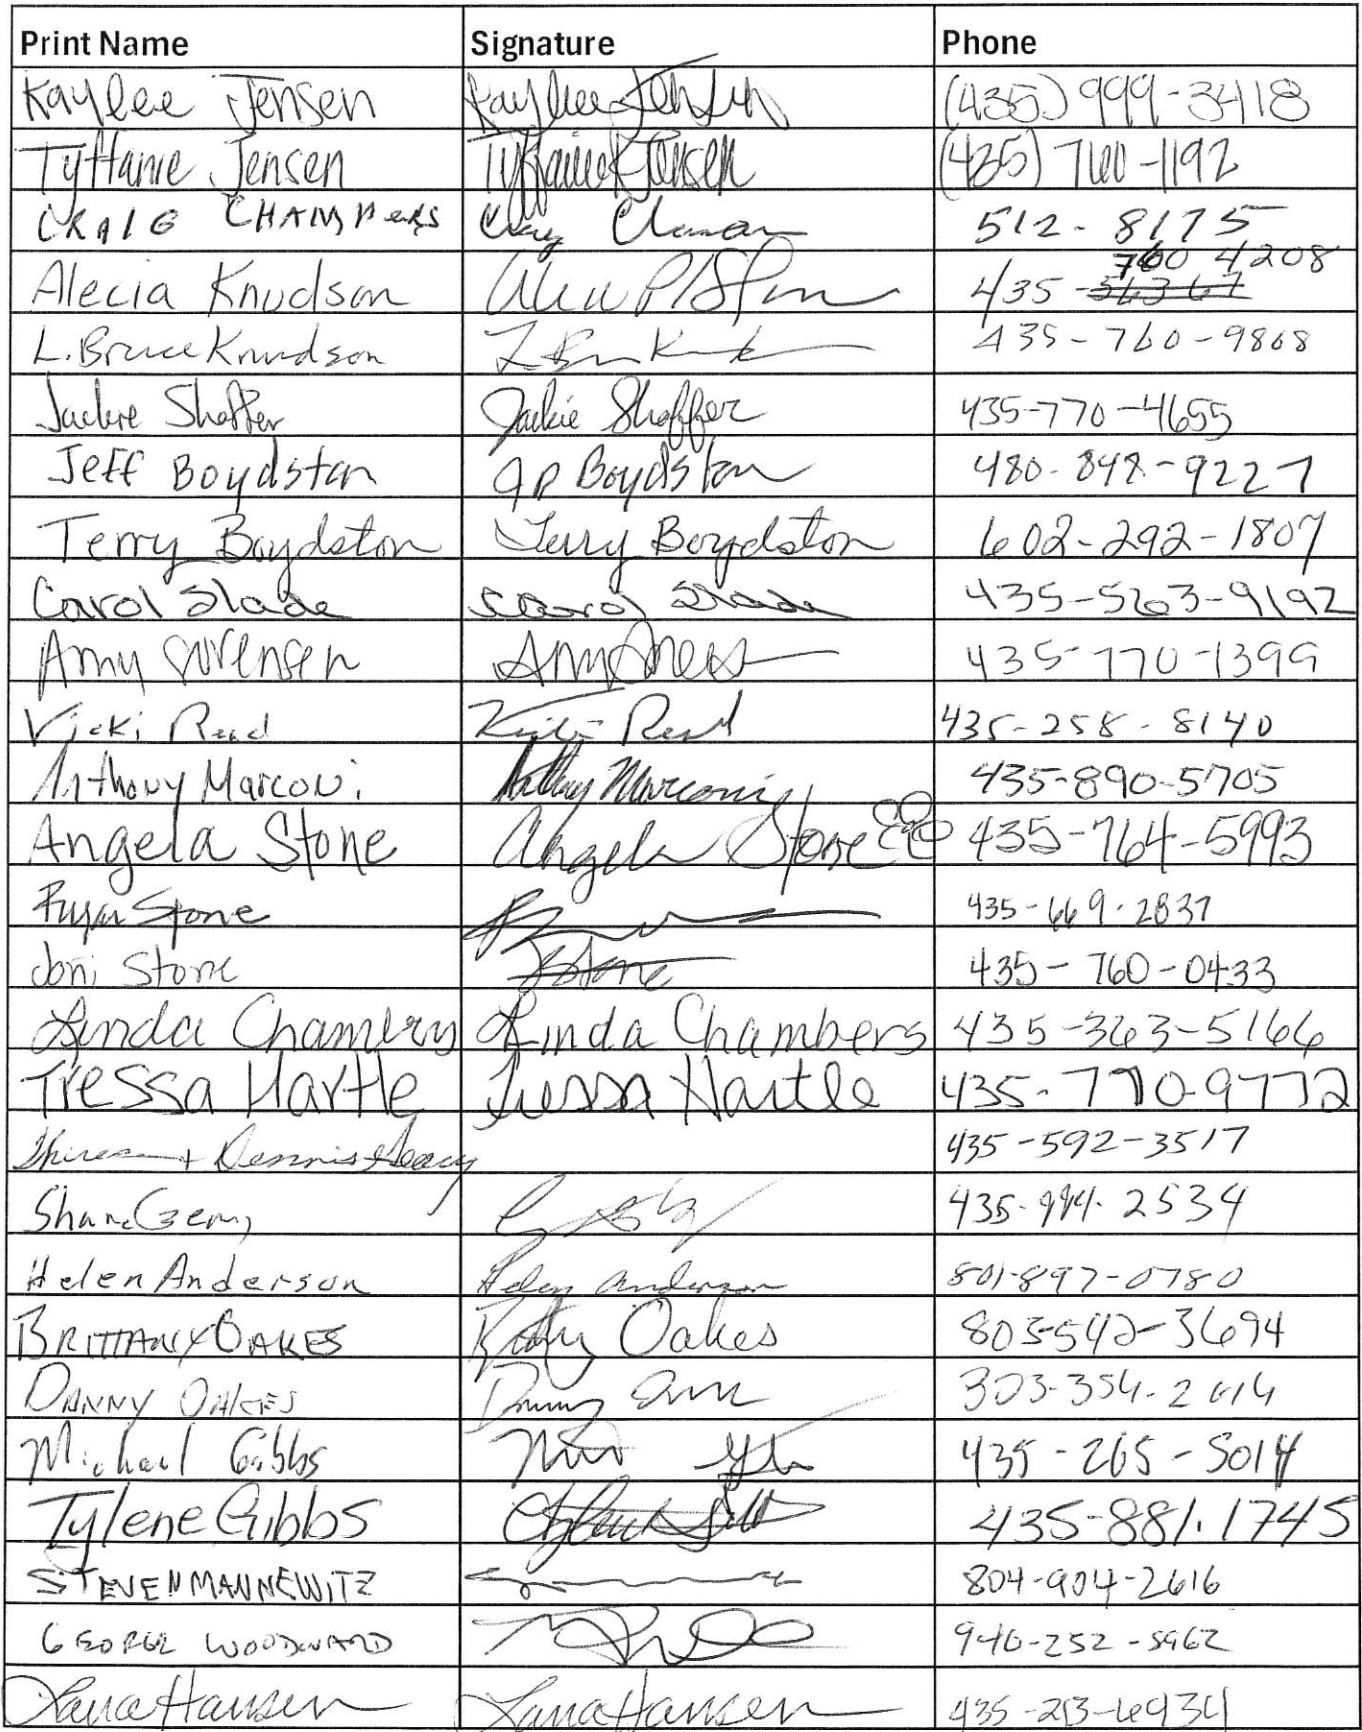 Print Name Signature Phone
Kaylee Jensen Kaylee Jensen (435) 999-3418
Tyffanie Jensen Tyffanie Jensen (435) 760-1192
CRAIG CHAMBERS Craig 512-8175
760 4208
Alecia Knudson 435
L. Bruce Knudson 435-760-9868
Jackie Shaffer Jackie Shaffer 435-770-4655
Jeff Boydston JD Boydston 480-848-9227
Terry Boydston Terry Boydston 602-292-1807
Carol Slade Carol Slade 435-563-9192
Amy Sorensen Amy 435-770-1399
Vicki Read Vicki Read 435-258-8140
Anthony Marconi Anthony Marconi 435-890-5705
Angela Stone Angela Stone 435-764-5993
Ryan Stone 435-669-2837
Joni Stone JStone 435-760-0433
Linda Chambers Linda Chambers 435-363-5166
Tressa Hartle Tressa Hartle 435-770-9772
+ Dennis 435-592-3517
Shane 435- 2534
Helen Anderson Helen Anderson 801-897-0780
BRITTANY OAKES Oakes 803-542-3694
DANNY OAKES Danny 303-354-2614
Michael Gibbs 435-265-5014
Tylene Gibbs 435-881.1745
STEVEN MANNEWITZ 804-904-2616
GEORGE WOODWARD 940-252-5962
Lana Hansen Lana Hansen 435-213-6934